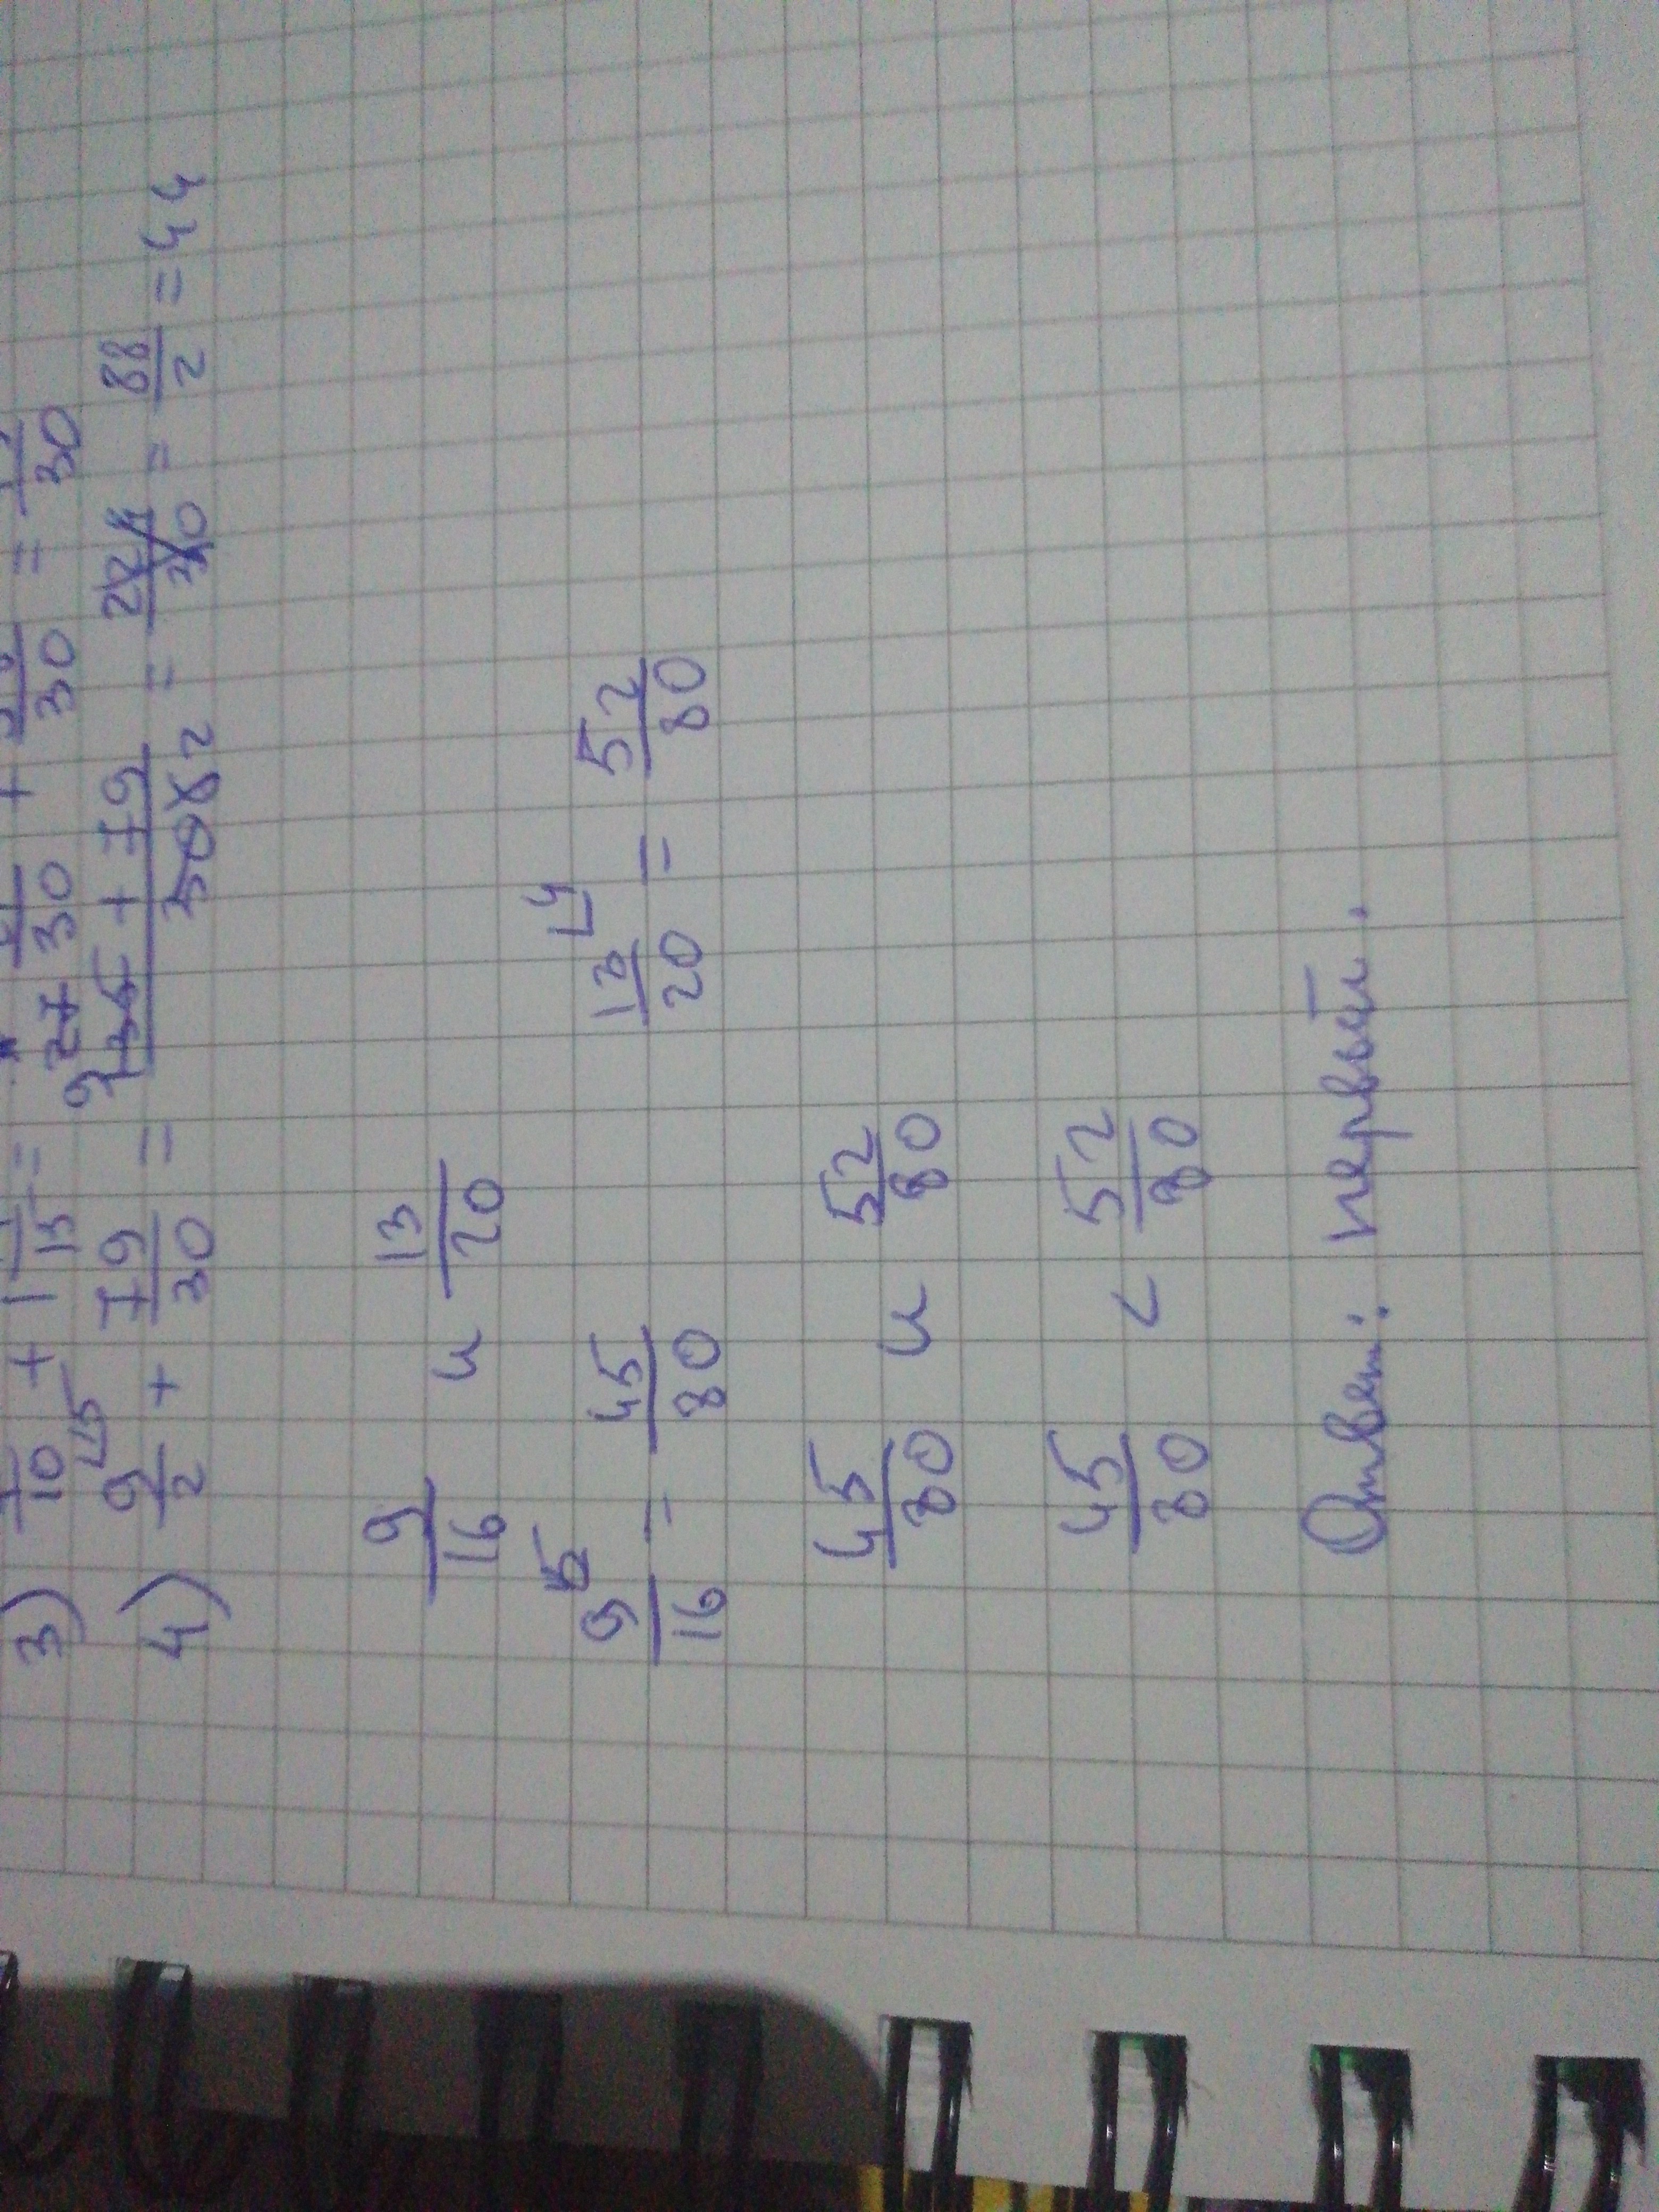 3) 10 + 1 15 = 30 + 30 = 30
4) 9/2 + 79/30 = + 79 = = 88/2 = 44
9/16 и 13/20
9/16 = 45/80 13/20 = 52/80
45/80 и 52/80
45/80 < 52/80
Ответ: первый.